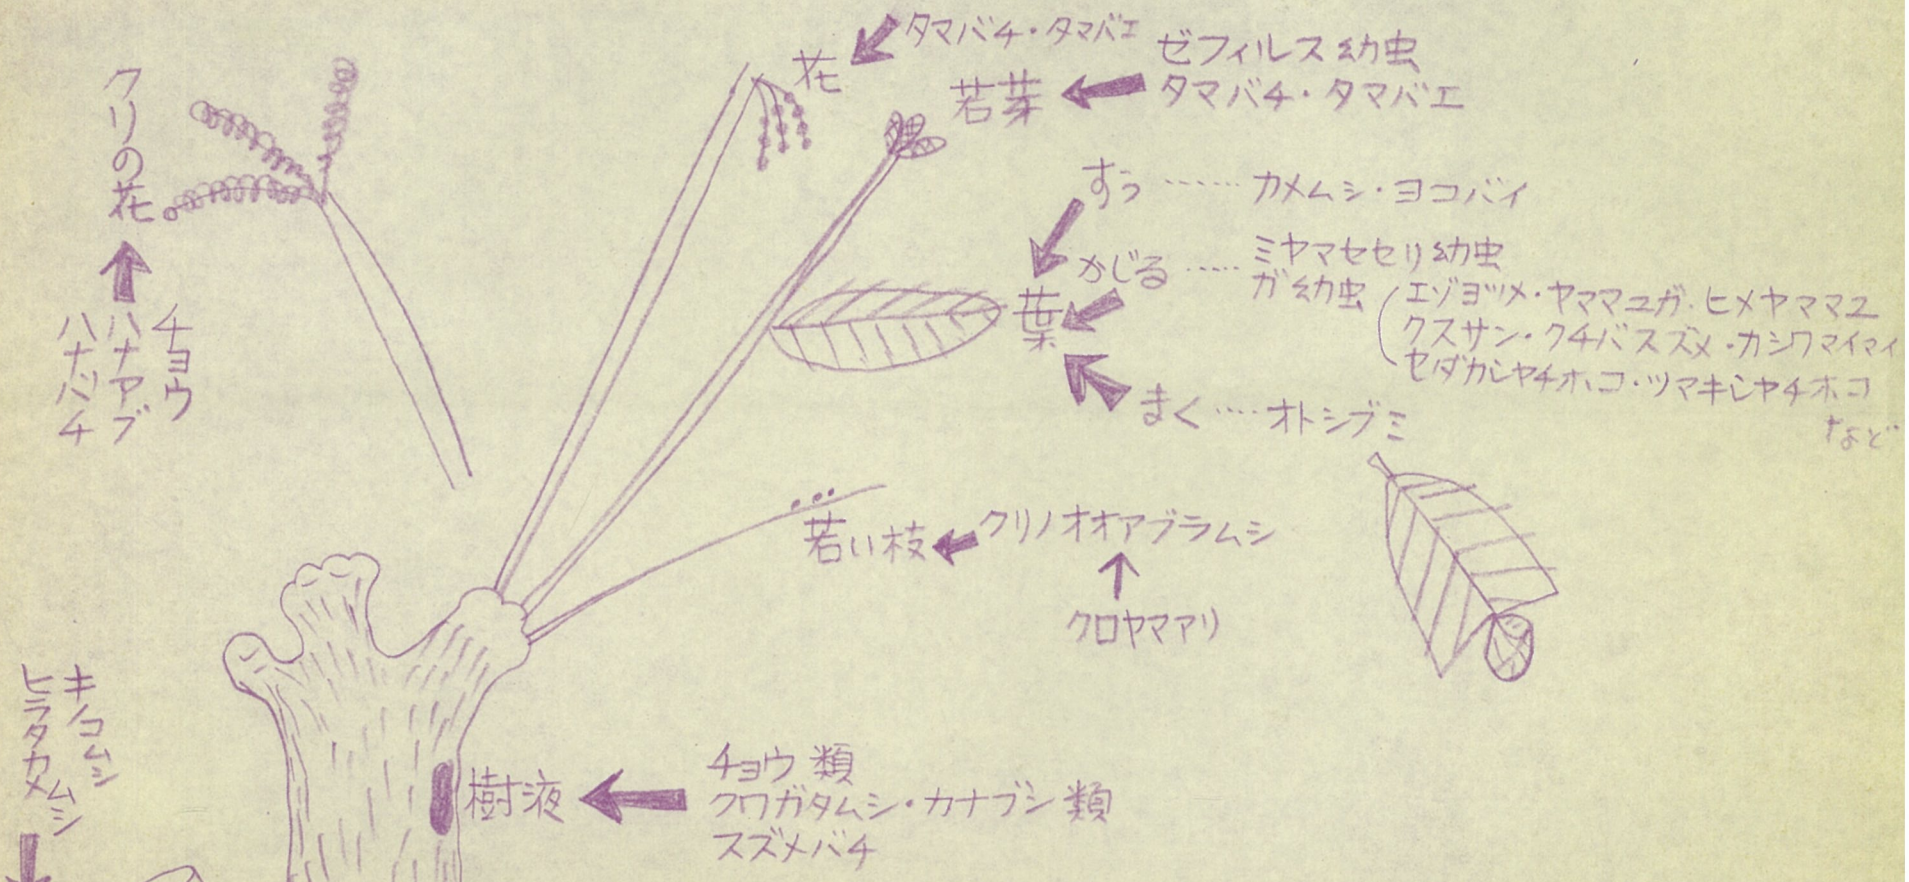 クリの花
チョウ
ハナアブ
ハナバチ
花
タマバチ・タマバエ
若芽
ゼフィルス幼虫
タマバチ・タマバエ
葉
すう……カメムシ・ヨコバイ
かじる……ミヤマセセリ幼虫
ガ幼虫
エゾヨツメ・ヤママユガ・ヒメヤママユ
クスサン・クチバスズメ・カシワマイマイ
セダカシャチホコ・ツマキシャチホコ
など
まく……オトシブミ
若い枝
クリノオオアブラムシ
クロヤマアリ
樹液
チョウ類
クワガタムシ・カナブン類
スズメバチ
キノコムシ
ヒラタカメムシ